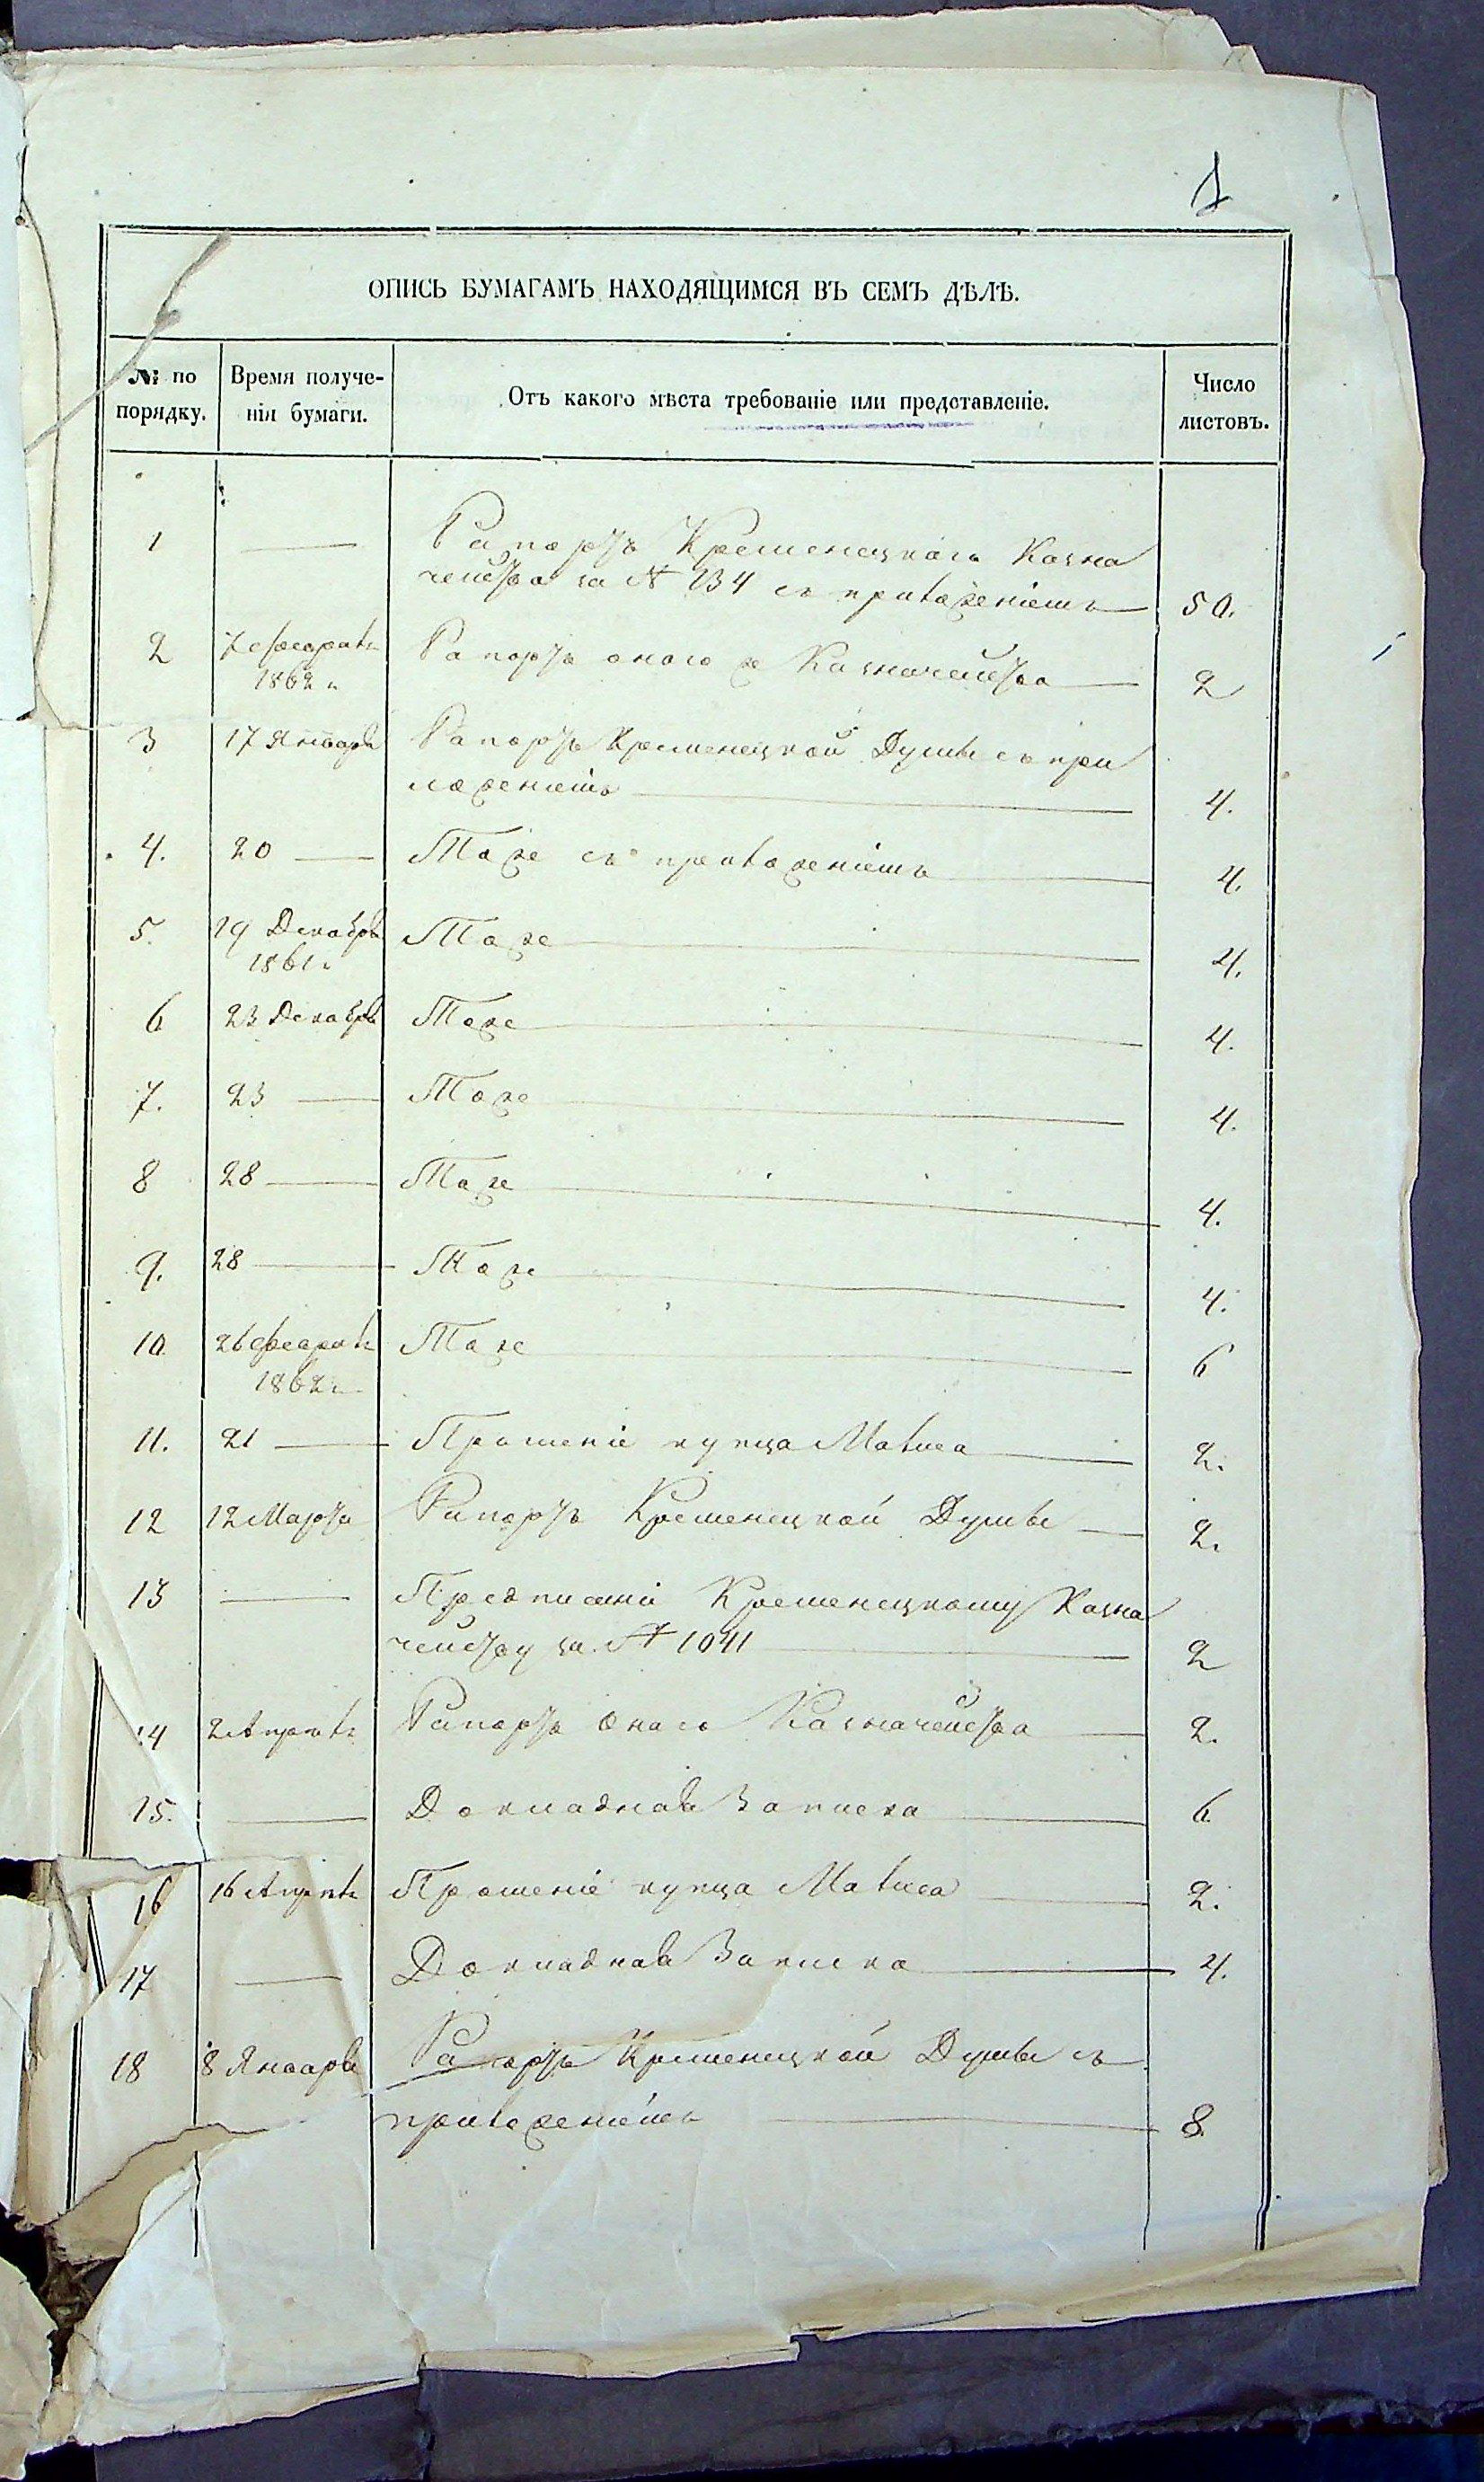 1
ОПИСЬ БУМАГАМЪ НАХОДЯЩИМСЯ ВЪ СЕМЪ ДѢЛѢ.
№ по порядку. Время полученія бумаги. Отъ какого мѣста требованіе или представленіе. Число листовъ.
1 — Рапортъ Кременецкаго Казна
чейства за № 134 съ приложеніемъ — 50.
2 7 Февраля Рапортъ онаго же Казначейства — 2
1862 г.
3 17 Января Рапортъ Кременецкой Думы съ при
ложеніемъ — 4.
4. 20 — Тоже съ приложеніемъ — 4.
5. 19 Декабря Тоже — 4.
1861 г.
6 23 Декабря Тоже — 4.
7. 23 — Тоже — 4.
8 28 — Тоже — 4.
9. 28 — Тоже — 4.
10. 26 Февраля Тоже — 6
1862 г.
11. 21 — Прошеніе купца — 2.
12 12 Марта Рапортъ Кременецкой Думы — 2.
13 — Предписаніе Кременецкому Казна
чейству за № 1041 — 2
14 2 Апреля Рапортъ онаго Казначейства — 2.
15. — Докладная Записка — 6
16 16 Апреля Прошеніе купца — 2.
17 — Докладная Записка — 4.
18 8 Января Рапортъ Кременецкой Думы съ
приложеніемъ — 8.